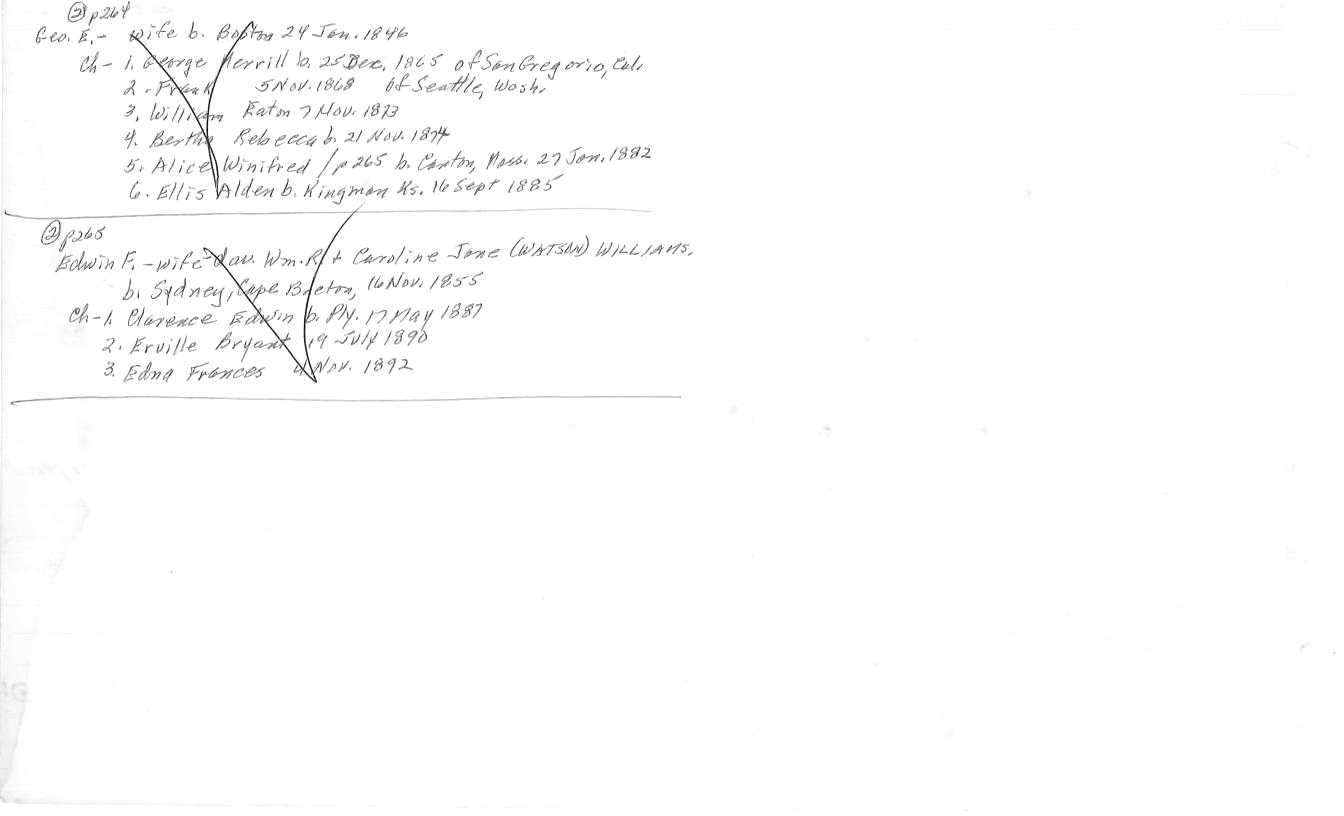 ② p264
Geo. E. - wife b. Boston 24 Jan. 1846
Ch - 1. George Merrill b. 25 Dec. 1865 of San Gregorio, Cal.
2. Frank 5 Nov. 1868 of Seattle, Wash.
3. William Eaton 7 Nov. 1873
4. Bertha Rebecca b. 21 Nov. 1874
5. Alice Winifred / p265 b. Canton, Mass. 27 Jan. 1882
6. Ellis Alden b. Kingman Ks. 16 Sept 1885
② p265
Edwin F. - wife dau. Wm. R. + Caroline Jane (WATSON) WILLIAMS.
b. Sydney, Cape Breton, 16 Nov. 1855
Ch - 1. Clarence Edwin b. Ply. 17 May 1887
2. Erville Bryant 19 July 1890
3. Edna Frances 4 Nov. 1892